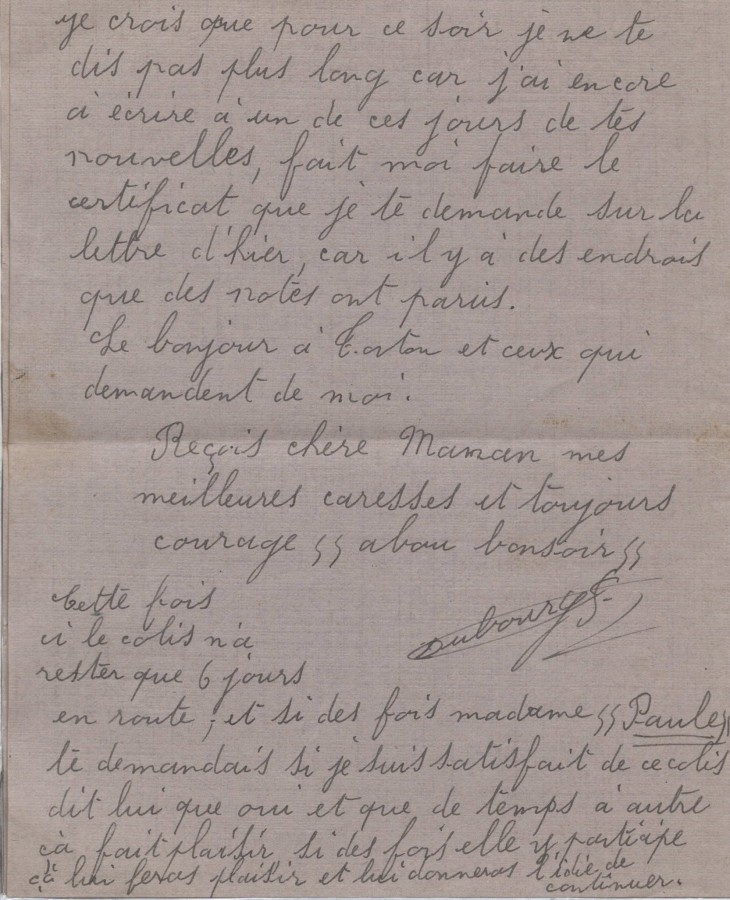 je crois que pour ce soir je ne te
dis pas plus long car j'ai encore
à écrire à un de ces jours de tes
nouvelles, fait moi faire le
certificat que je te demande sur la
lettre d'hier, car il y à des endrois
que des notes ont parus.
Le bonjour à Toston et ceux qui
demandent de moi.
Reçois chère Maman mes
meilleures caresses et toujours
courage " abou bonsoir "
Dubourg S.
Cette fois
ci le colis n'a
rester que 6 jours
en route, et si des fois madame " Paule "
te demandais si je suis satisfait de ce colis
dit lui que oui et que de temps à autre
çà fait plaisir si des fois elle y participe
çà lui feras plaisir et lui donneras l'idée de
continuer.